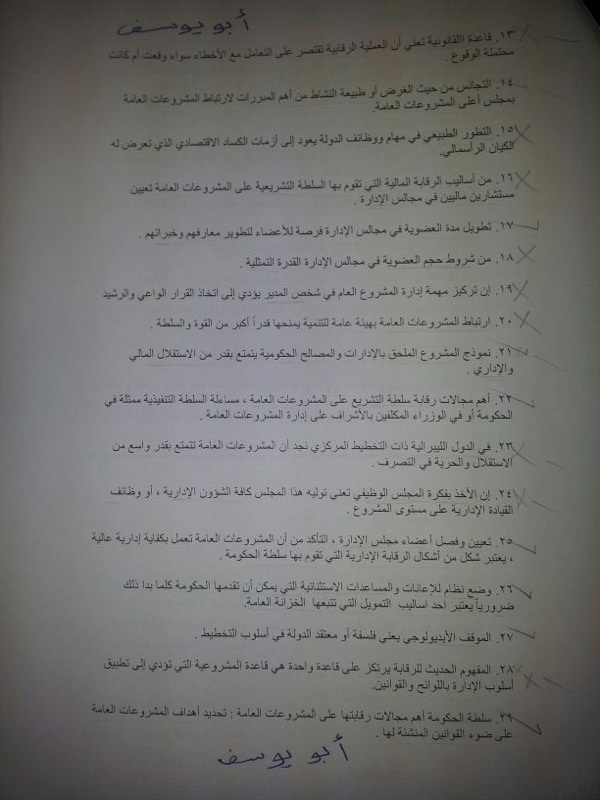 أبو يوسف
١٣. قاعدة القانونية تعني أن العملية الرقابية تقتصر على التعامل مع الأخطاء سواء وقعت أم كانت
محتملة الوقوع .
١٤. التجانس من حيث الغرض أو طبيعة النشاط من أهم المبررات لارتباط المشروعات العامة
بمجلس أعلى المشروعات العامة.
١٥. التطور الطبيعي في مهام ووظائف الدولة يعود إلى أزمات الكساد الاقتصادي الذي تعرض له
الكيان الرأسمالي.
١٦. من أساليب الرقابة المالية التي تقوم بها السلطة التشريعية على المشروعات العامة تعيين
مستشارين ماليين في مجالس الإدارة .
١٧. تطويل مدة العضوية في مجالس الإدارة فرصة للأعضاء لتطوير معارفهم وخبراتهم .
١٨. من شروط حجم العضوية في مجالس الإدارة القدرة التمثلية .
١٩. إن تركيز مهمة إدارة المشروع العام في شخص المدير يؤدي إلى اتخاذ القرار الواعي والرشيد
٢٠. ارتباط المشروعات العامة بهيئة عامة للتنمية يمنحها قدراً أكبر من القوة والسلطة .
٢١. نموذج المشروع الملحق بالإدارات والمصالح الحكومية يتمتع بقدر من الاستقلال المالي
والإداري .
٢٢. أهم مجالات رقابة سلطة التشريع على المشروعات العامة ، مساءلة السلطة التنفيذية ممثلة في
الحكومة أو في الوزراء المكلفين بالأشراف على إدارة المشروعات العامة .
٢٣. في الدول الليبرالية ذات التخطيط المركزي نجد أن المشروعات العامة تتمتع بقدر واسع من
الاستقلال والحرية في التصرف .
٢٤. إن الأخذ بفكرة المجلس الوظيفي تعني توليه هذا المجلس كافة الشؤون الإدارية ، أو وظائف
القيادة الإدارية على مستوى المشروع .
٢٥. تعيين وفصل أعضاء مجلس الإدارة ، التأكد من أن المشروعات العامة تعمل بكفاية إدارية عالية
، يعتبر شكل من أشكال الرقابة الإدارية التي تقوم بها سلطة الحكومة .
٢٦. وضع نظام للإعانات والمساعدات الاستثنائية التي يمكن أن تقدمها الحكومة كلما بدا ذلك
ضرورياً يعتبر احد اساليب التمويل التي تتبعها الخزانة العامة.
٢٧. الموقف الأيديولوجي يعني فلسفة أو معتقد الدولة في أسلوب التخطيط .
٢٨. المفهوم الحديث للرقابة يرتكز على قاعدة واحدة هي قاعدة المشروعية التي تؤدي إلى تطبيق
أسلوب الإدارة باللوائح والقوانين.
٢٩. سلطة الحكومة أهم مجالات رقابتها على المشروعات العامة : تحديد أهداف المشروعات العامة
على ضوء القوانين المنشئة لها .
أبو يوسف